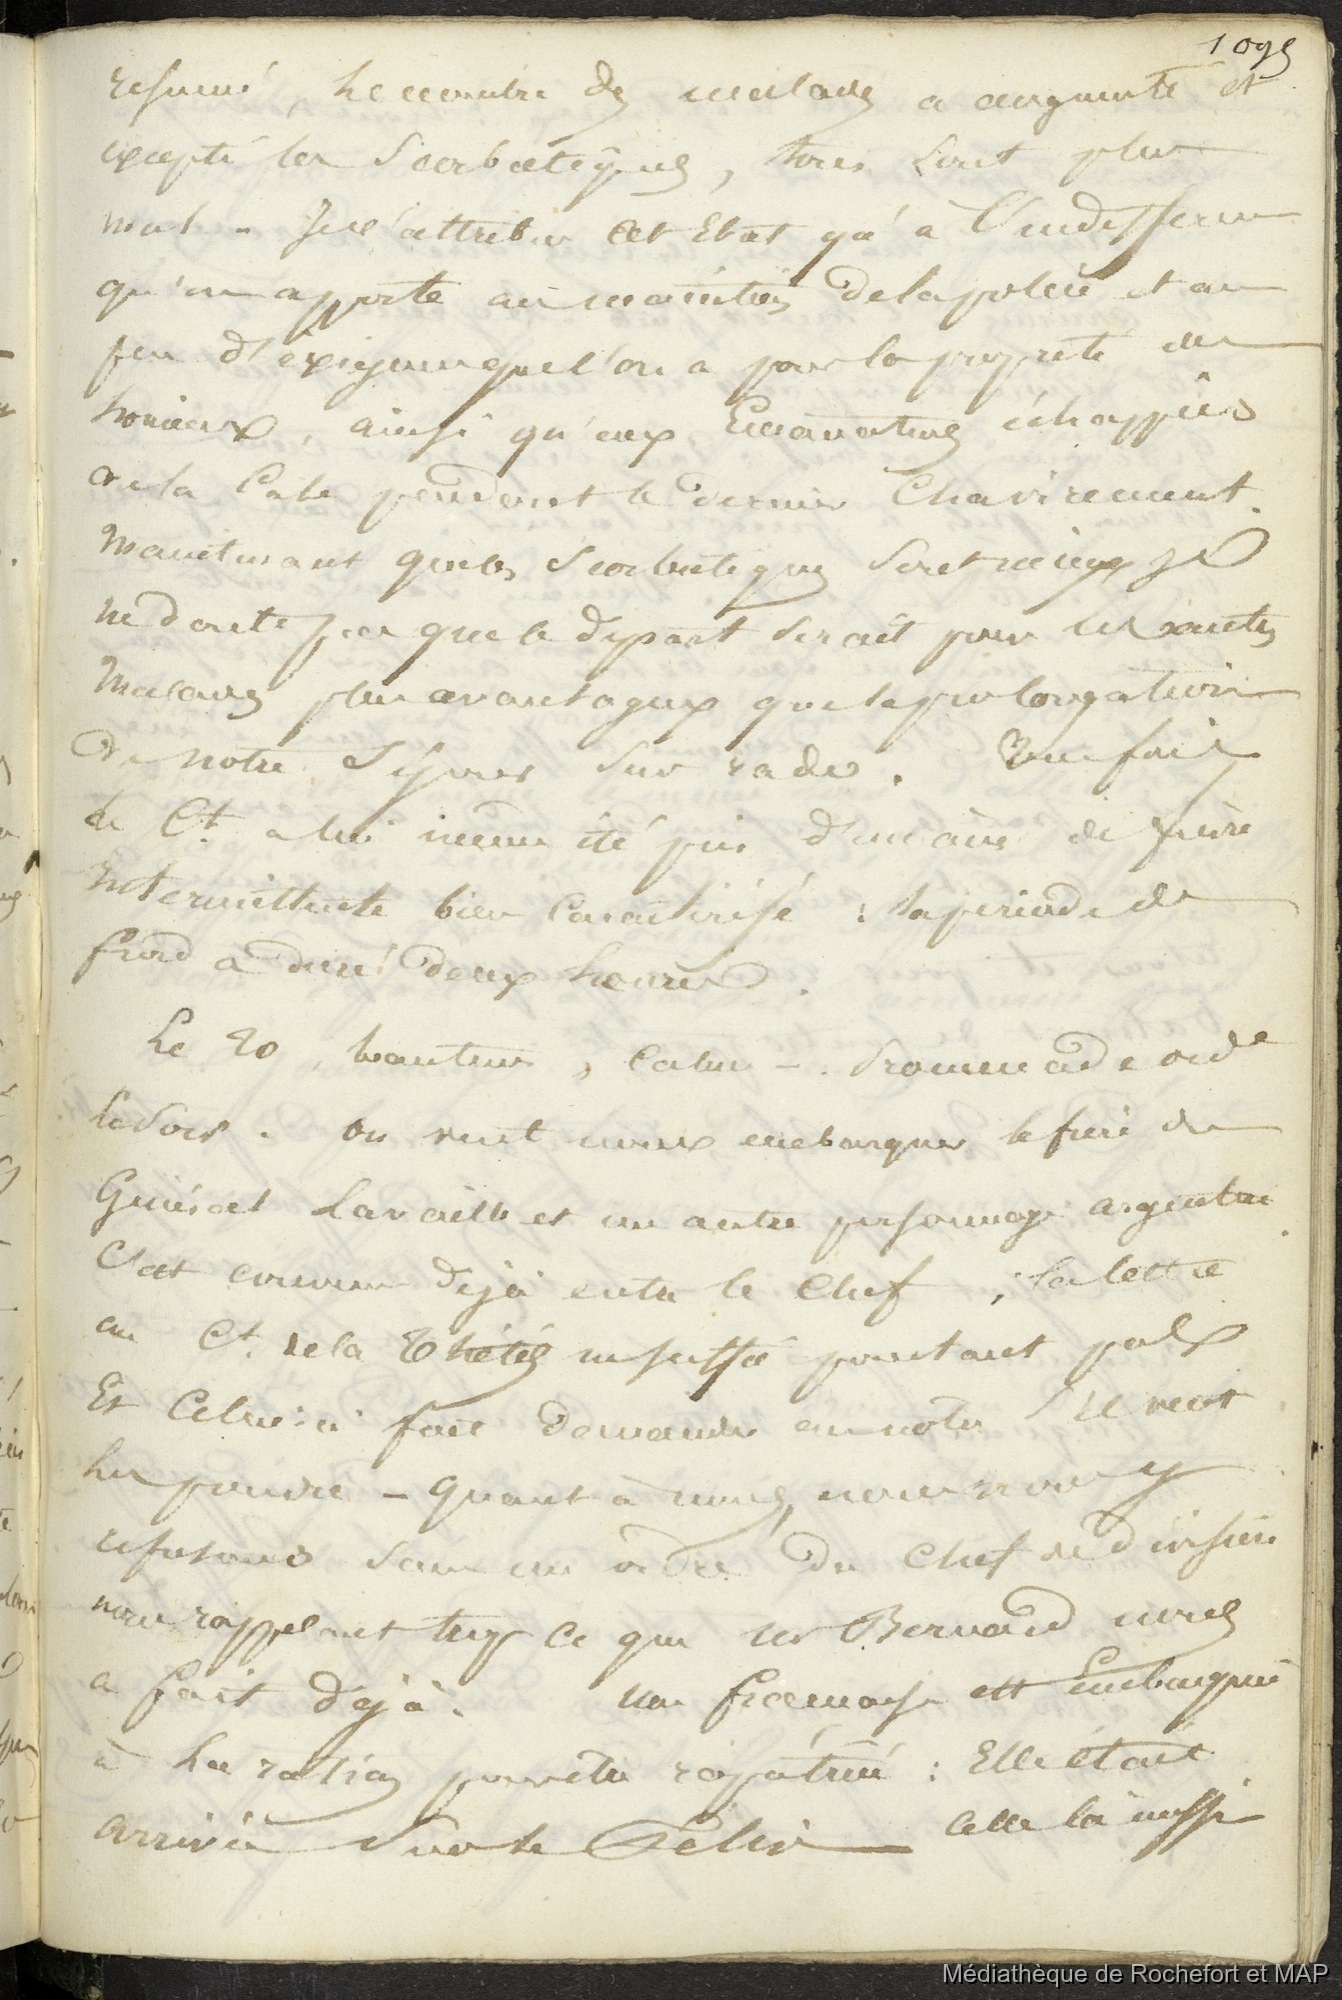 1095
resumé, le nombre des malades a augmenté et
excepté les Scorbutiques, tous sont plus
mal - Je n'attribue cet Etat qu'à l'indifference
qu'on apporte au maintien de la police et au
peu d'exigence que l'on a pour la propreté des
hommes, ainsi qu'aux Emanations échappées
de la Cale pendant le dernier Chavirement.
Maintenant que les Scorbutiques sont mieux je
ne doute pas que le départ serait pour les autres
malades plus avantageux que la prolongation
de notre Séjour sur rade. Une fois
le Ct. a lui même été pris d'un accès de fièvre
intermittente bien caractérisé : la periode de
froid a duré deux heures.
Le 20, beau tems, calme -. Promenade ord.e
le soir. On veut nous embarquer le frère du
Général Lavalle et un autre personnage argentin.
C'est convenu déjà entre le Chef ; la lettre
au Ct. de la Thétis ne suffit pourtant pas
Et Celui-ci fait demander au notre s'il veut
les prendre - quant à nous, nous nous y
refusons sans un ordre du Chef de division
nous rappelant trop ce que Mr Bernard nous
a fait déjà. Une française est Embarquée
à la ration pour être rapatriée : Elle était
arrivée sur le Felix Celle là aussi
Médiathèque de Rochefort et MAP